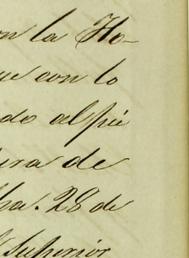 on la Ho-
ue con lo
do al pié
ura de
ha. 28 de
Superior